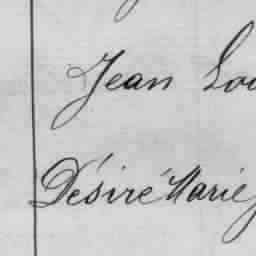 Jean Lou
Désiré Marie